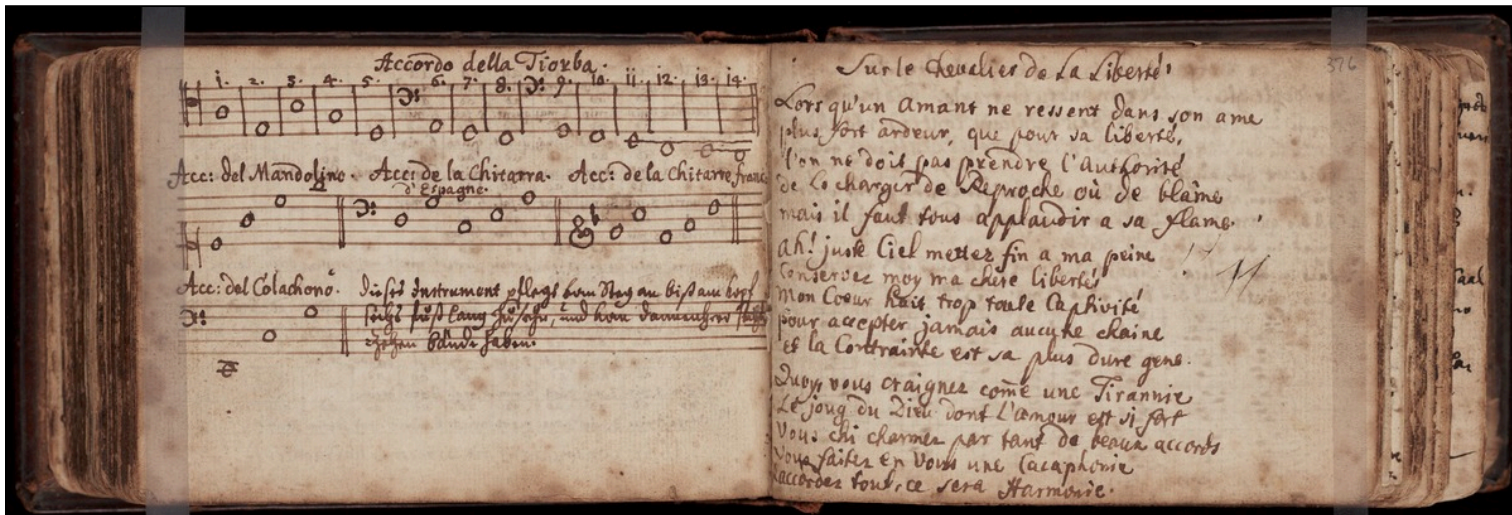 Accordo della Tiorba.
1. 2. 3. 4. 5. 6. 7. 8. 9. 10. 11. 12. 13. 14.
Acc: del Mandolino. Acc: de la Chitarra. Acc: de la Chitarre franc
d'Espagne.
Acc: del Colachono. Dieses Instrument pflegt vom Steg an biß am Kopf
sechs fuß lang zu sehn, und vom
zehen bände haben.
376
Sur le Chevalier de La Liberté
Lors qu'un amant ne ressent dans son ame
plus fort ardeur, que pour sa liberté,
l'on ne doit pas prendre l'Authorité
de Le charger de Reproche où de blâme
mais il faut tous applaudir a sa flame.
ah! juste Ciel mettez fin a ma peine
Conservez moy ma chere liberté
mon Coeur hait trop toute Captivité
pour accepter jamais aucune chaine
et la Contrainte est sa plus dure gene.
Quoy vous craignez come une Tirannie
Le joug du Dieu dont L'amour est si fort
Vous chi charmez par tant de beaux accords
Vous faites en Vous une Cacaphonie
accordez tout, ce sera Harmonie.